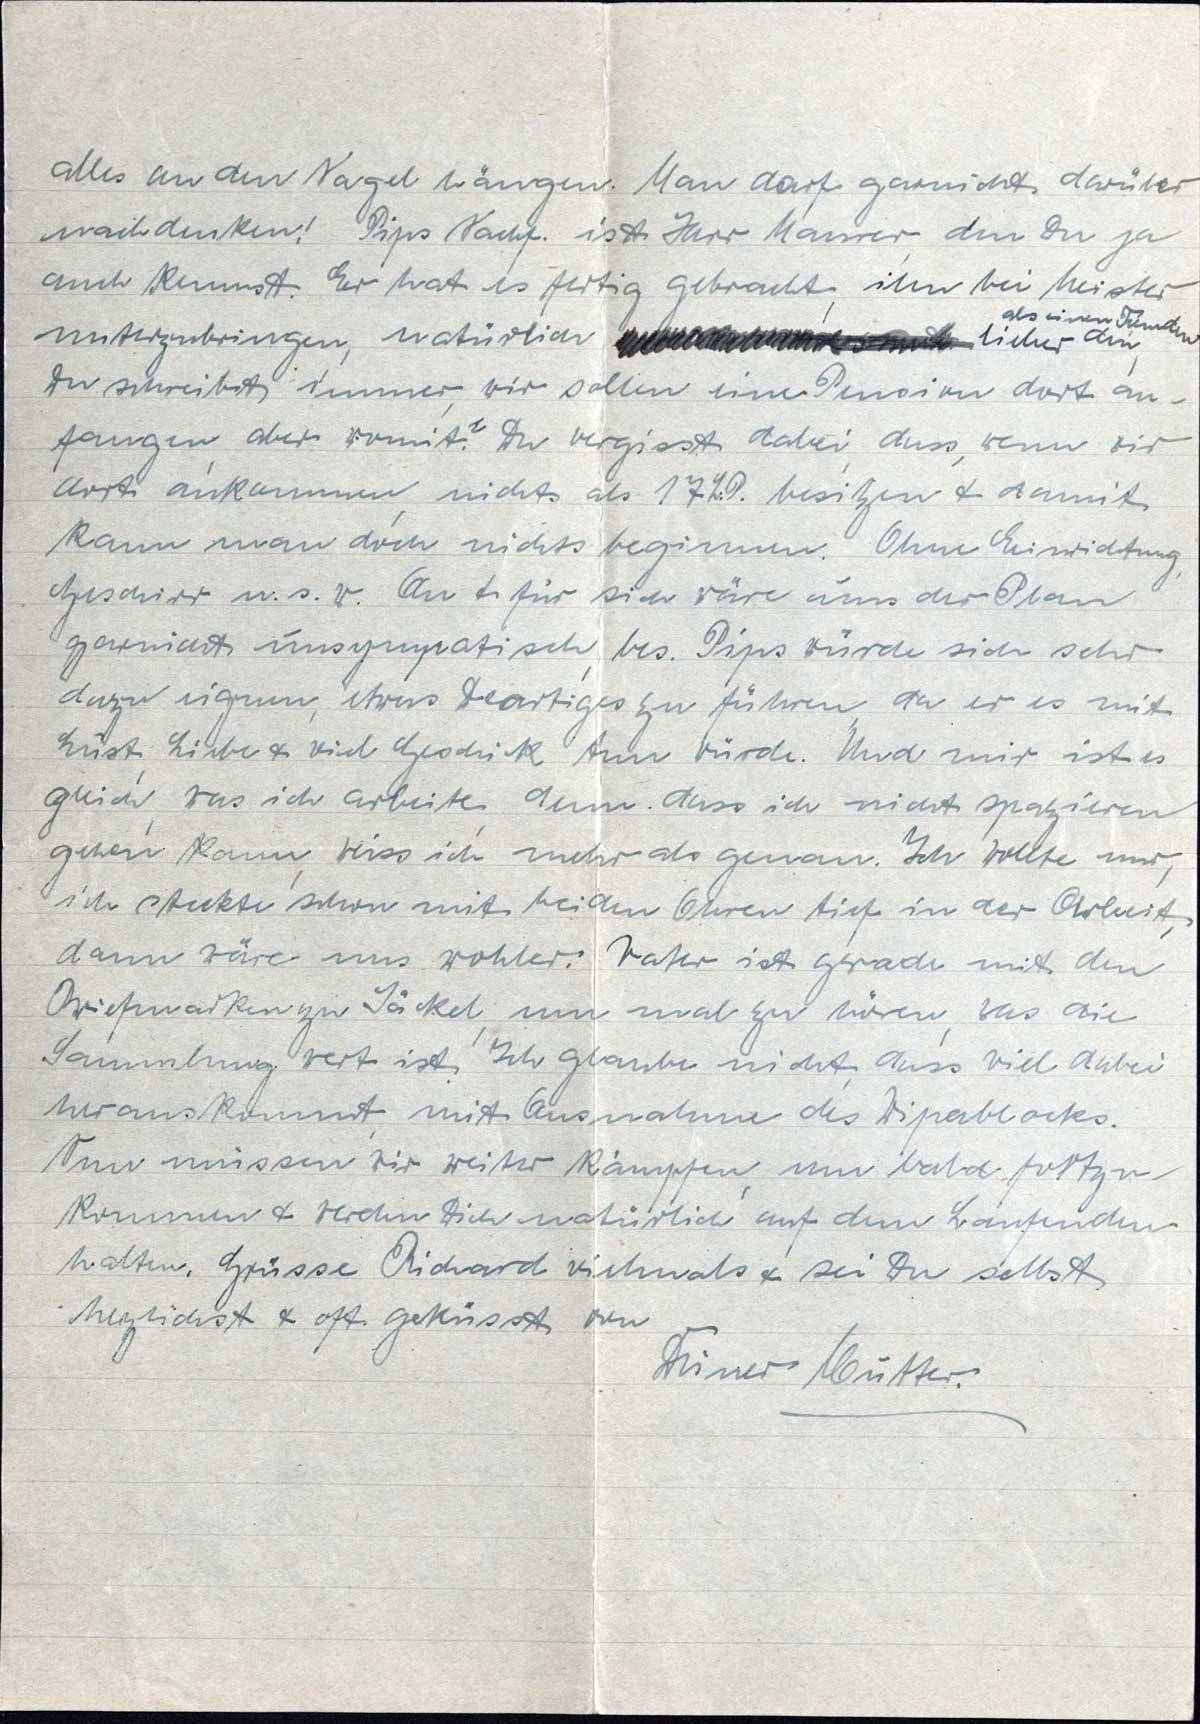 alles an den Nagel hängen. Man darf garnicht darüber
nachdenken! Pips Nachf. ist Herr Maurer, den Du ja
auch kennst. Er hat es fertig gebracht, ihn bei Meister
unterzubringen, natürlich lieber den, als einen Fremden
Du schreibst immer, wir sollen eine Pension dort an-
fangen aber womit? Du vergisst dabei, dass, wenn wir
dort ankommen, nichts als 17 L.P. besitzen & damit
kann man doch nichts beginnen. Ohne Einrichtung,
Geschirr u. s. w. An & für sich wäre uns der Plan
garnicht unsympatisch, bes. Pips würde sich sehr
dazu eignen, etwas Deartiges zu führen, da er es mit
Lust, Liebe & viel Geschick tun würde. Und mir ist es
gleich, was ich arbeite, denn. dass ich nicht spazieren
gehen kann, weiss ich mehr als genau. Ich wollte nur,
ich steckte schon mit beiden Ohren tief in der Arbeit,
dann wäre uns wohler! Vater ist gerade mit den
Briefmarken zu Jäckel, um mal zu hören, was die
Sammlung wert ist. Ich glaube nicht, dass viel dabei
herauskommt, mit Ausnahme des Wipablocks.
Nun müssen wir weiter kämpfen, um bald fortzu-
kommen & werden Dich natürlich auf dem Laufenden
halten. Grüsse Richard vielmals & sei Du selbst
herzlichst & oft geküsst von
Deiner Mutter.